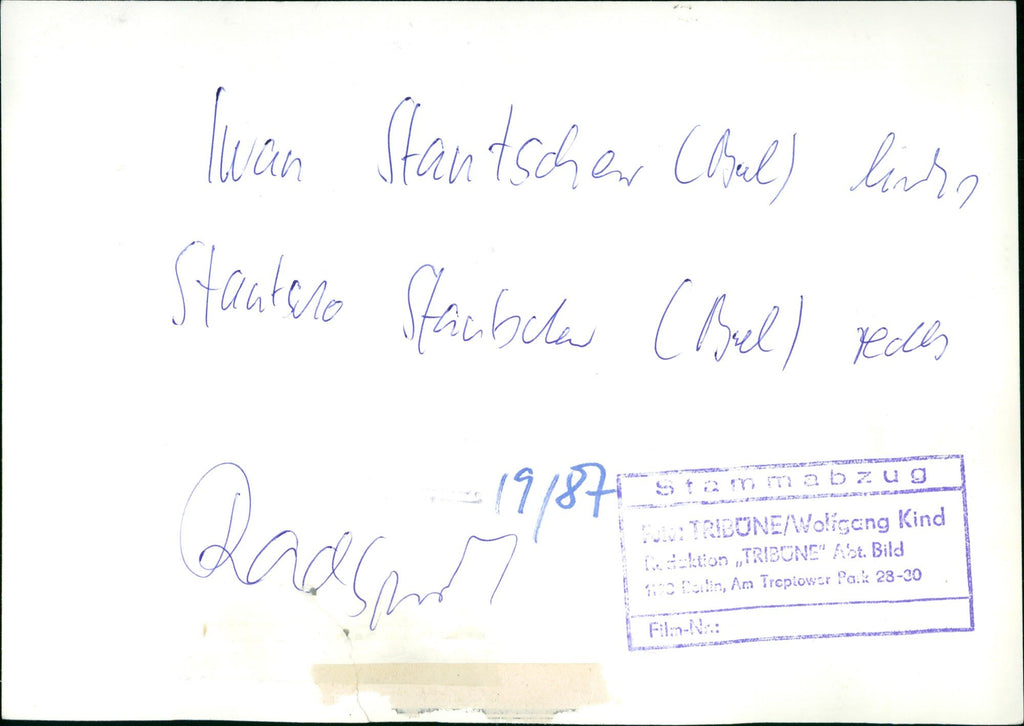 Iwan Stantschew (Bul) links
Stantscho Stantschew (Bul) rechts
Radsport
19/87
Stammabzug
Foto: TRIBÜNE/Wolfgang Kind
Redaktion „TRIBÜNE“ Abt. Bild
Berlin, Am Treptower Park 28-30
Film-Nr.: